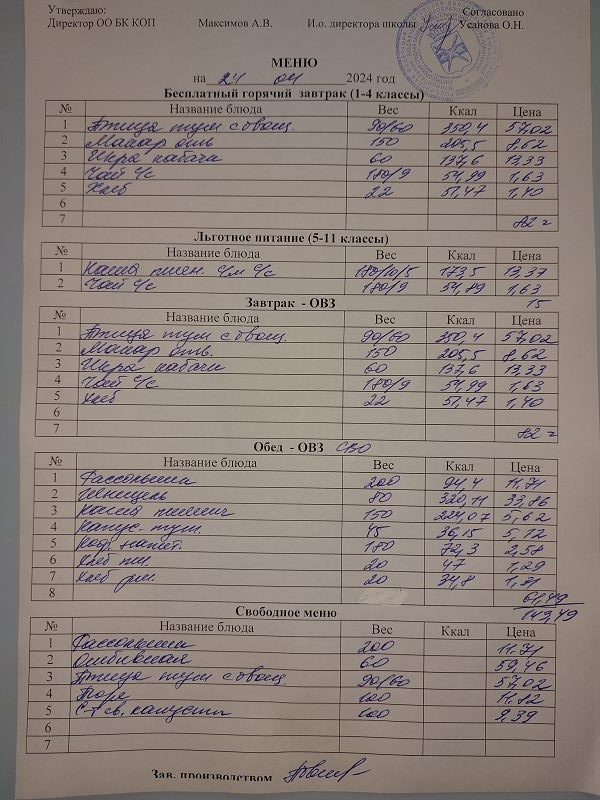 Утверждаю: Согласовано
Директор ОО БК КОП Максимов А.В. И.о. директора школы Усанова О.Н.
МЕНЮ
на 24 04 2024 год
Бесплатный горячий завтрак (1-4 классы)
№ Название блюда Вес Ккал Цена
1 Птица туш с овощ. 90/60 350,4 57,02
2 Макар отв 150 205,5 8,62
3 Икра кабачк 60 137,6 13,33
4 Чай с/с 180/9 54,99 1,63
5 Хлеб 22 51,47 1,40
6
7 82 =
Льготное питание (5-11 классы)
№ Название блюда Вес Ккал Цена
1 Каша пшен. с/м с/с 180/10/5 173,5 13,37
2 Чай с/с 180/9 54,89 1,63
15
Завтрак - ОВЗ
№ Название блюда Вес Ккал Цена
1 Птица туш с овощ. 90/60 350,4 57,02
2 Макар отв. 150 205,5 8,62
3 Икра кабачк 60 137,6 13,33
4 Чай с/с 180/9 54,99 1,63
5 Хлеб 22 51,47 1,40
6
7 82 =
Обед - ОВЗ СВО
№ Название блюда Вес Ккал Цена
1 Рассольник 200 94,4 11.71
2 Шницель 80 320,11 33,86
3 Каша пшенич 150 224,07 5,62
4 Капус. туш. 45 36,15 5,12
5 Коф. напит. 180 72,3 2,58
6 Хлеб пш. 20 47 1,29
7 Хлеб рж. 20 34,8 1,31
8 61,49
143,49
Свободное меню
№ Название блюда Вес Ккал Цена
1 Рассольник 200 11.71
2 Отбивная 60 59,46
3 Птица туш с овощ. 90/60 57,02
4 Пюре 100 11,82
5 С-т св. капусты 100 9,39
6
7
Зав. производством